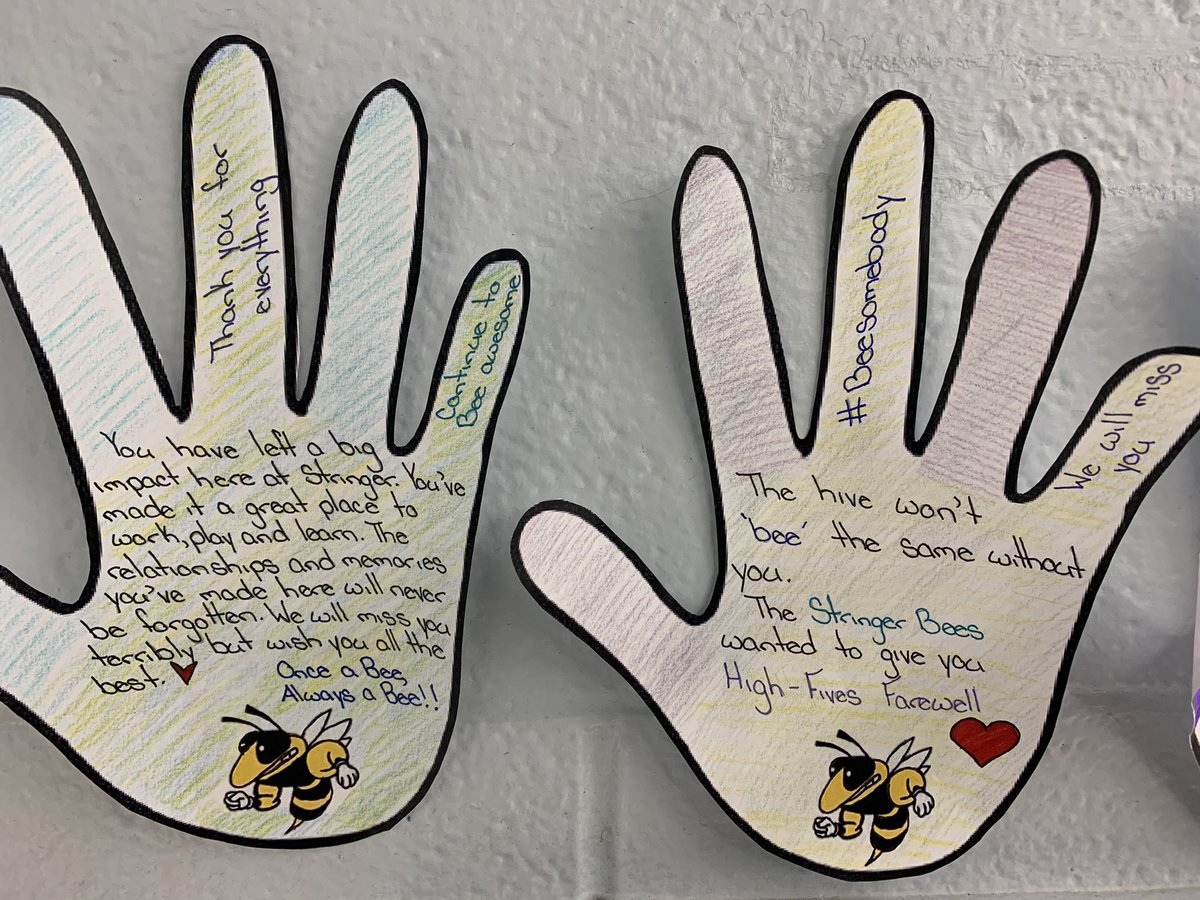 Thank you for
everything
Continue to
Bee awesome
You have left a big
impact here at Stringer. You've
made it a great place to
work, play and learn. The
relationships and memories
you've made here will never
be forgotten. We will miss you
terribly but wish you all the
best.
Once a Bee,
Always a Bee!!
#Beesomebody
We will miss
you
The hive won't
'bee' the same without
you.
The Stringer Bees
wanted to give you
High-Fives Farewell